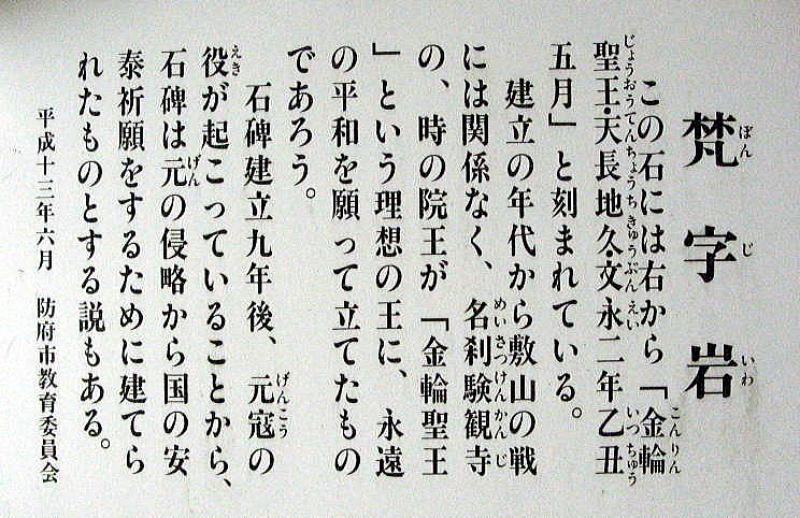 梵字岩
この石には右から「金輪
聖王・天長地久・文永二年乙丑
五月」と刻まれている。
建立の年代から敷山の戦
には関係なく、名刹験観寺
の、時の院王が「金輪聖王
」という理想の王に、永遠
の平和を願って立てたもの
であろう。
石碑建立九年後、元寇の
役が起こっていることから、
石碑は元の侵略から国の安
泰祈願をするために建てら
れたものとする説もある。
平成十三年六月 防府市教育委員会